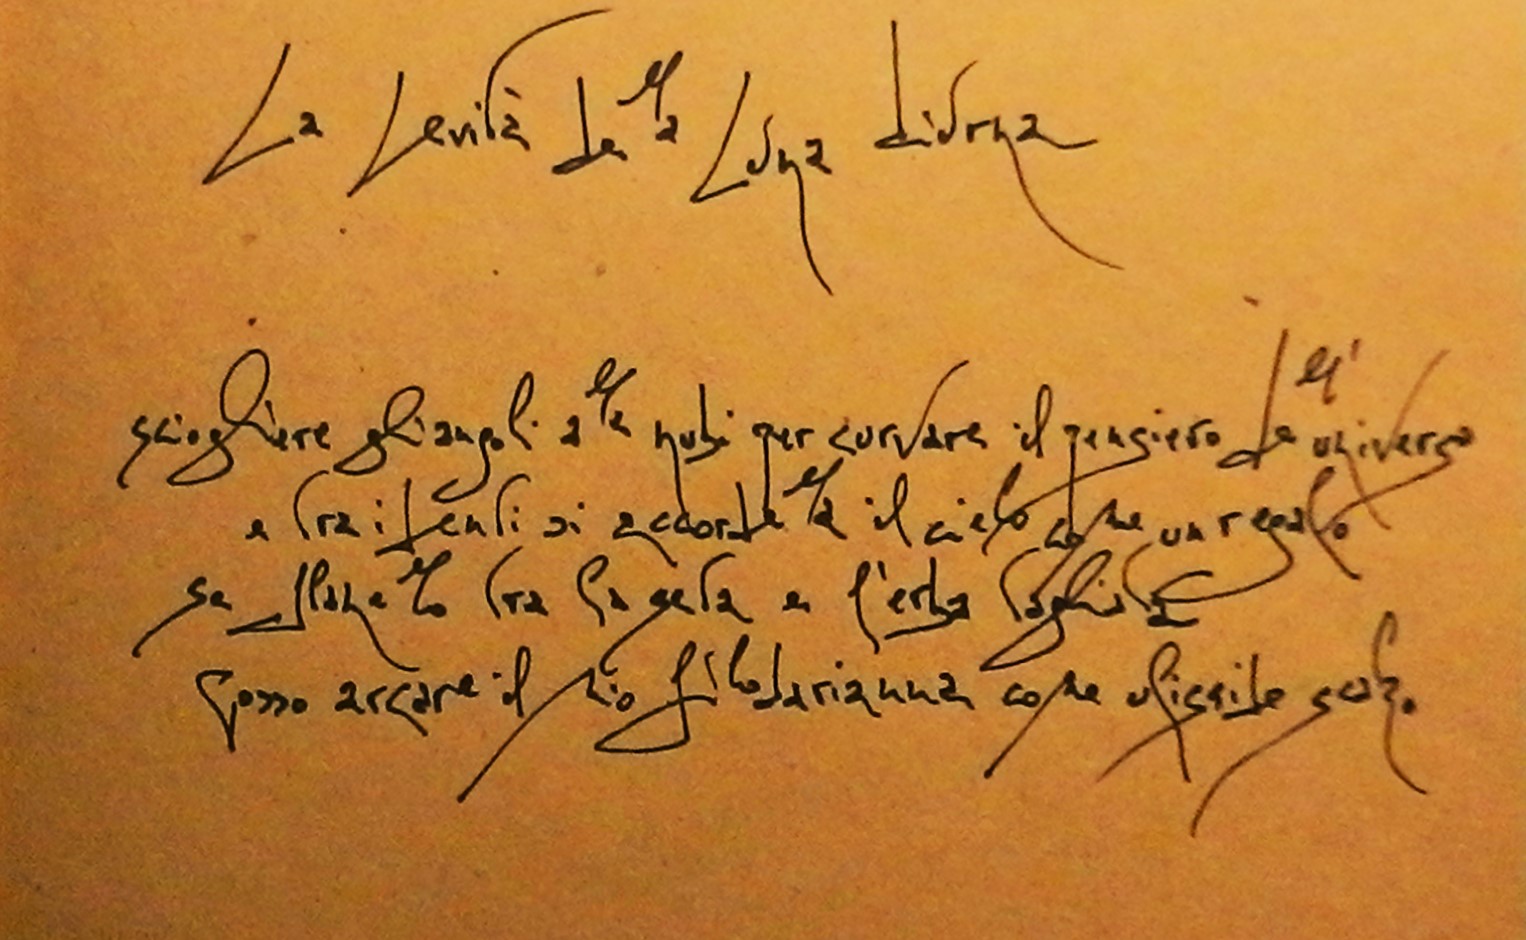 La Levità della Luna diurna
sciogliere gli angoli alle nubi per curvare il pensiero dell'universo
e tra i denti si accorda il cielo come un regalo
se tra la seta e l'erba tagliata
posso arcare il mio filo d'arianna come